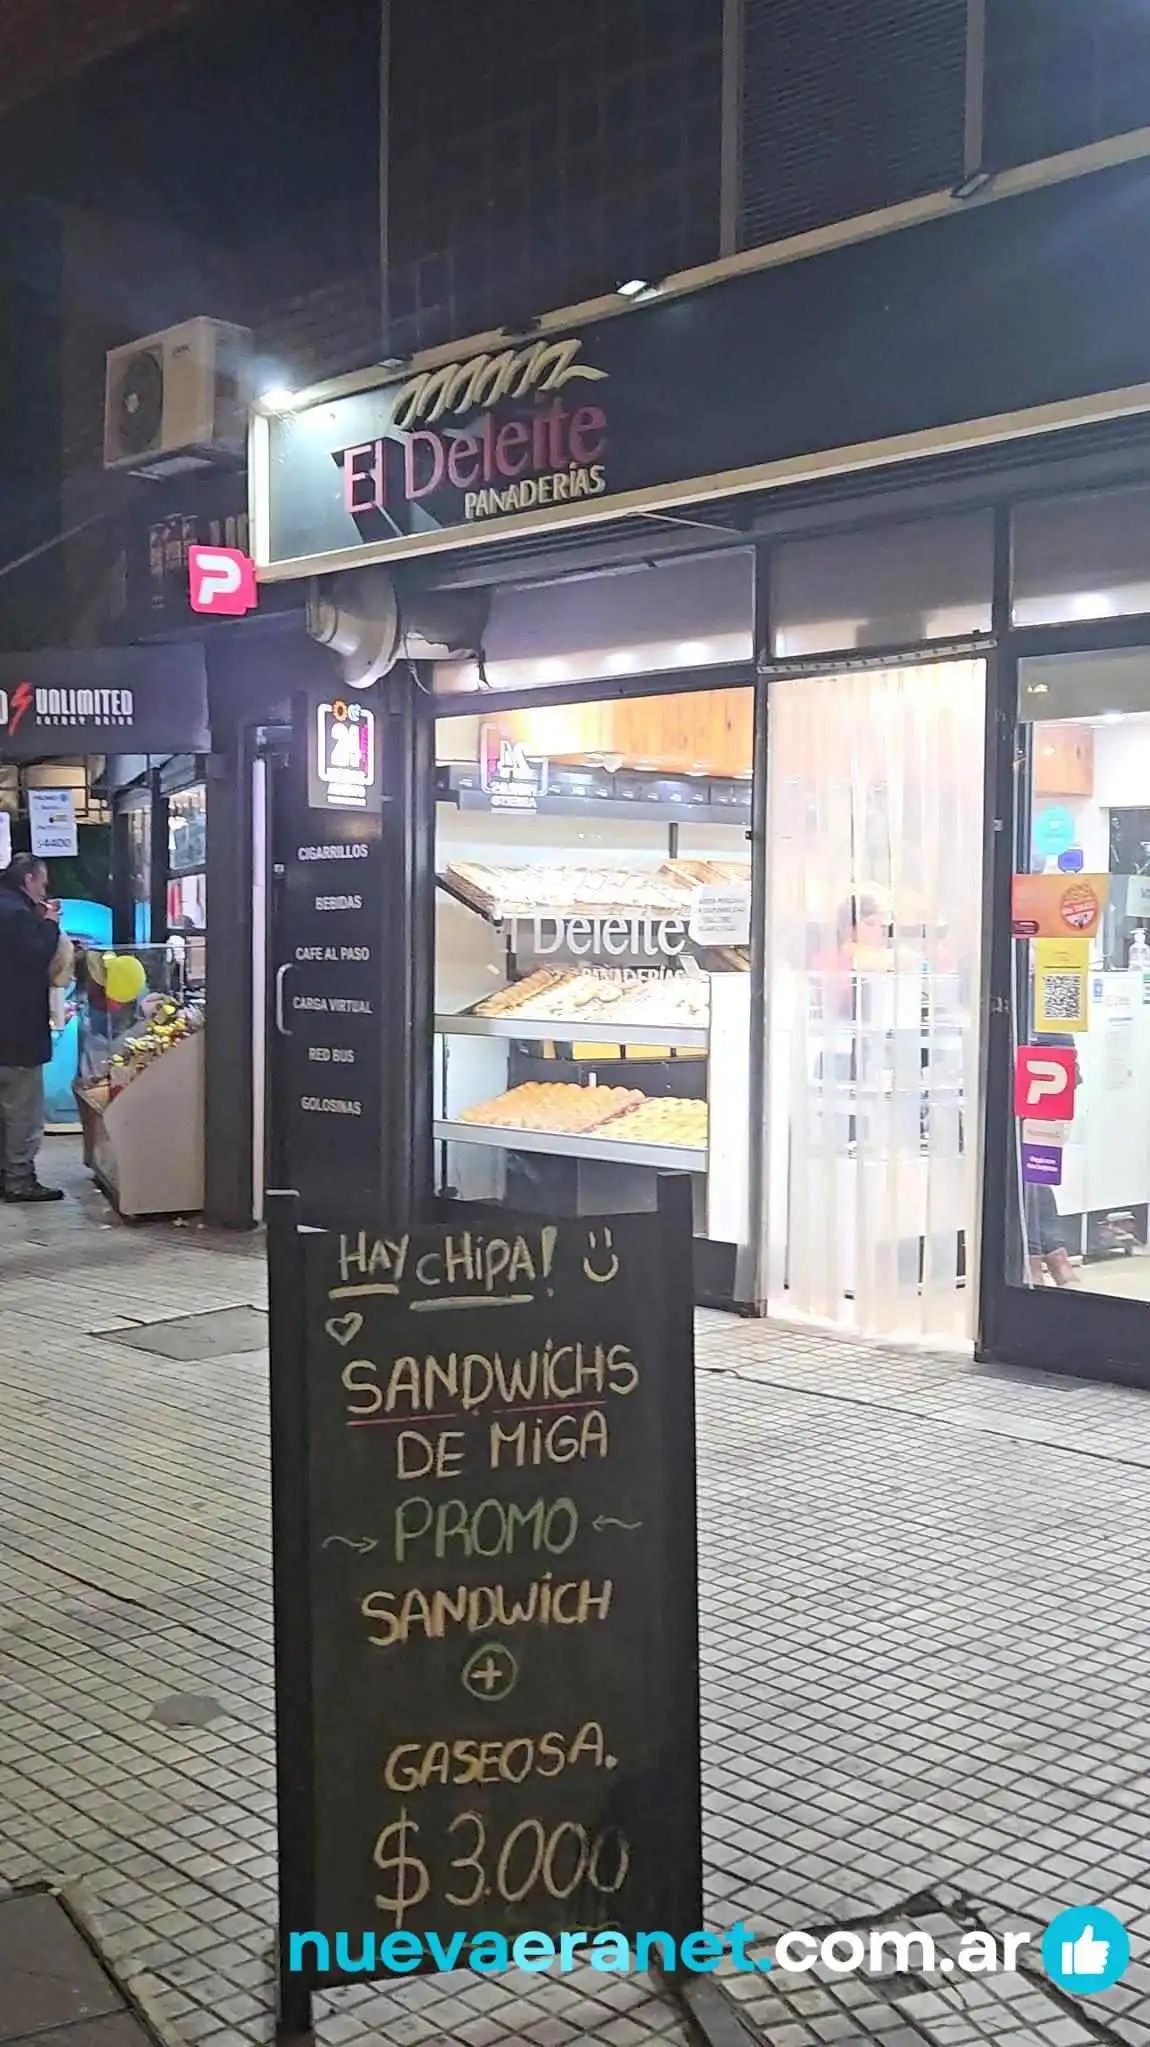 El Deleite
PANADERÍAS
P
UNLIMITED
ENERGY DRINK
24
$4400
CIGARRILLOS
BEBIDAS
CAFE AL PASO
CARGA VIRTUAL
RED BUS
GOLOSINAS
El Deleite
PANADERÍAS
P
HAY CHIPA!
SANDWICHS
DE MIGA
PROMO
SANDWICH
+
GASEOSA.
$3.000
nuevaeranet.com.ar